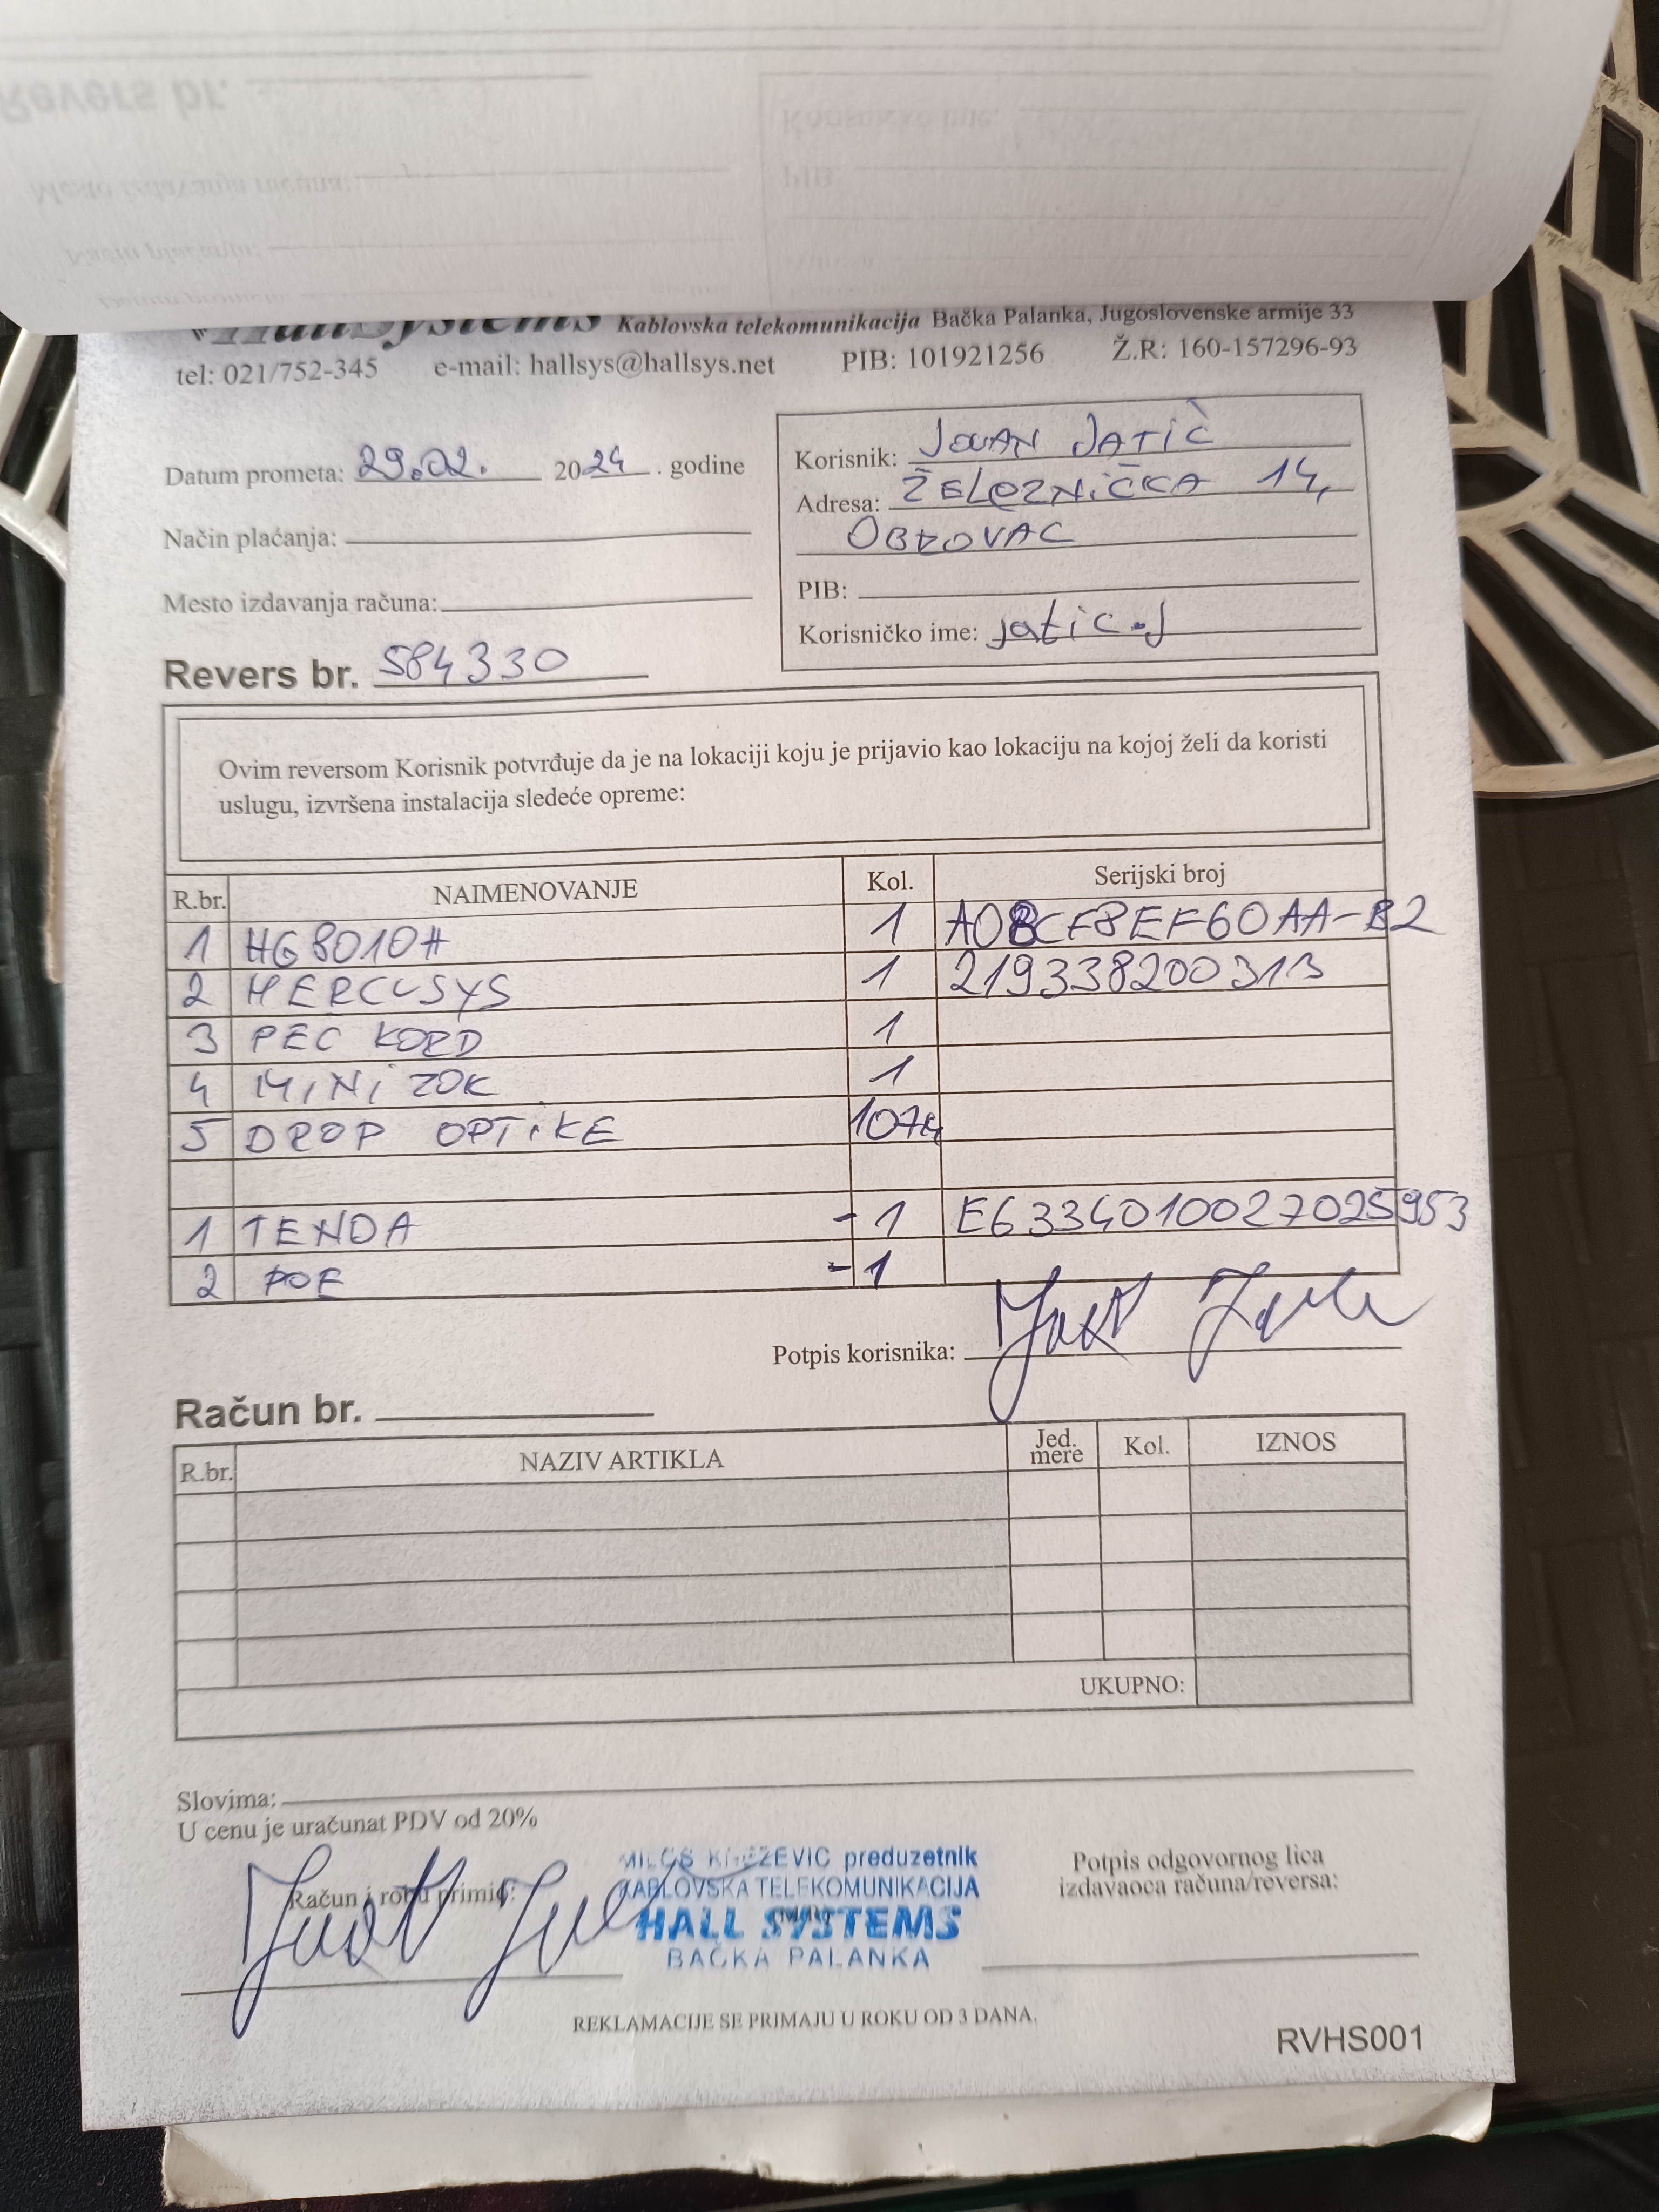 HallSystems Kablovska telekomunikacija Bačka Palanka, Jugoslovenske armije 33
tel: 021/752-345 e-mail: hallsys@hallsys.net PIB: 101921256 Ž.R: 160-157296-93
Datum prometa: 29.02. 2024. godine
Način plaćanja:
Mesto izdavanja računa:
Revers br. 584330
Korisnik: JOVAN JATIĆ
Adresa: ŽELEZNIČKA 14,
OBROVAC
PIB:
Korisničko ime: jatic.j
Ovim reversom Korisnik potvrđuje da je na lokaciji koju je prijavio kao lokaciju na kojoj želi da koristi
uslugu, izvršena instalacija sledeće opreme:
R.br. NAIMENOVANJE Kol. Serijski broj
1 HG8010H 1 A08CF8EF60AA-B2
2 MERCUSYS 1 219338200313
3 PEC KORD 1
4 MINI ZOK 1
5 DROP OPTIKE 107m
1 TENDA -1 E6334010027025953
2 POE -1
Potpis korisnika:
Račun br.
R.br. NAZIV ARTIKLA Jed. mere Kol. IZNOS
UKUPNO:
Slovima:
U cenu je uračunat PDV od 20%
Račun i robu primio:
MILOŠ KNEŽEVIĆ preduzetnik
KABLOVSKA TELEKOMUNIKACIJA
HALL SYSTEMS
BAČKA PALANKA
Potpis odgovornog lica
izdavaoca računa/reversa:
REKLAMACIJE SE PRIMAJU U ROKU OD 3 DANA.
RVHS001